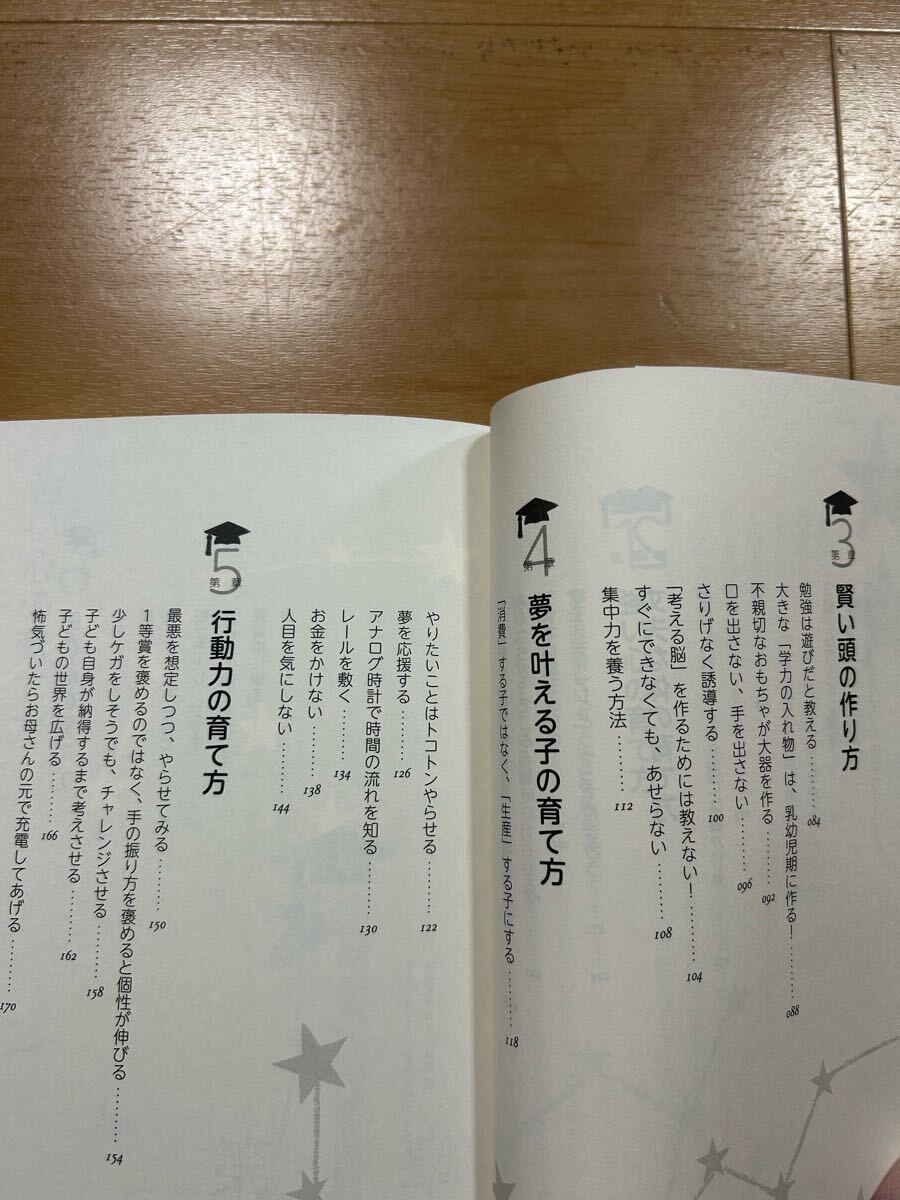 第3章
賢い頭の作り方
勉強は遊びだと教える………084
大きな「学力の入れ物」は、乳幼児期に作る！………088
不親切なおもちゃが大器を作る………092
口を出さない、手を出さない………096
さりげなく誘導する………100
「考える脳」を作るためには教えない！………104
すぐにできなくても、あせらない………108
集中力を養う方法………112
第4章
夢を叶える子の育て方
「消費」する子ではなく、「生産」する子にする………118
やりたいことはトコトンやらせる………122
夢を応援する………126
アナログ時計で時間の流れを知る………130
レールを敷く………134
お金をかけない………138
人目を気にしない………144
第5章
行動力の育て方
最悪を想定しつつ、やらせてみる………150
1等賞を褒めるのではなく、手の振り方を褒めると個性が伸びる………154
少しケガをしそうでも、チャレンジさせる………158
子ども自身が納得するまで考えさせる………162
子どもの世界を広げる………166
怖気づいたらお母さんの元で充電してあげる………170